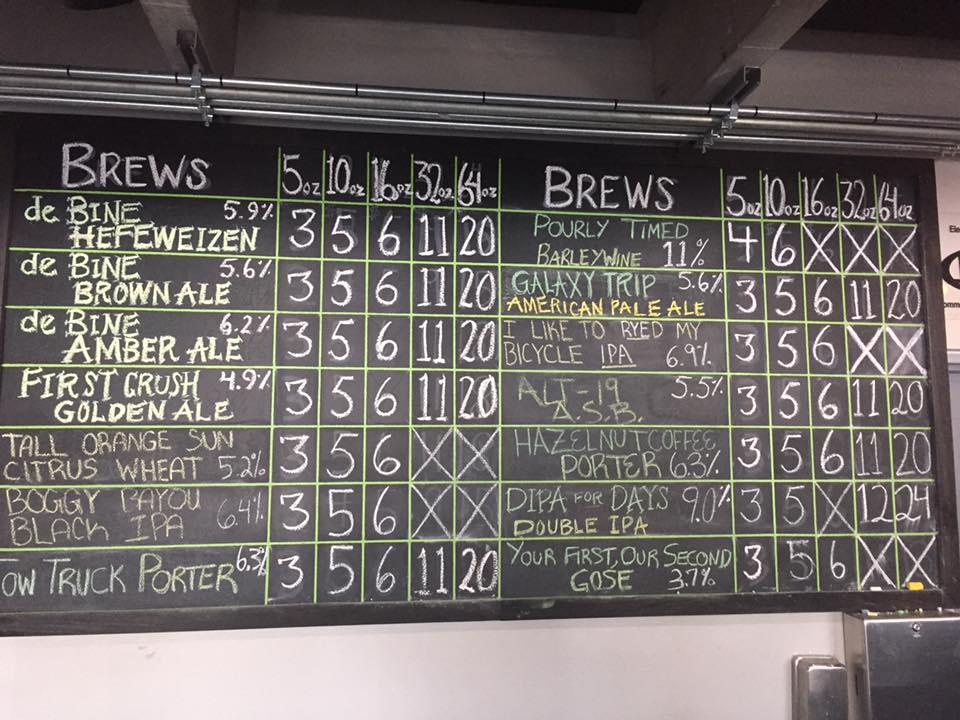 BREWS 5oz 10oz 16oz 32oz 64oz
de BINE 5.9%
HEFEWEIZEN 3 5 6 11 20
de BINE 5.6%
BROWN ALE 3 5 6 11 20
de BINE 6.2%
AMBER ALE 3 5 6 11 20
FIRST CRUSH 4.9%
GOLDEN ALE 3 5 6 11 20
TALL ORANGE SUN
CITRUS WHEAT 5.2% 3 5 6 X X
BOGGY BAYOU
BLACK IPA 6.4% 3 5 6 X X
TOW TRUCK PORTER 6.3% 3 5 6 11 20
BREWS 5oz 10oz 16oz 32oz 64oz
POURLY TIMED
BARLEYWINE 11% 4 6 X X X
GALAXY TRIP 5.6%
AMERICAN PALE ALE 3 5 6 11 20
I LIKE TO RYED MY
BICYCLE IPA 6.9% 3 5 6 X X
ALT-19 5.5%
A.S.B. 3 5 6 11 20
HAZELNUT COFFEE
PORTER 6.3% 3 5 6 11 20
DIPA FOR DAYS 9.0%
DOUBLE IPA 3 5 X 12 24
YOUR FIRST, OUR SECOND
GOSE 3.7% 3 5 6 X X